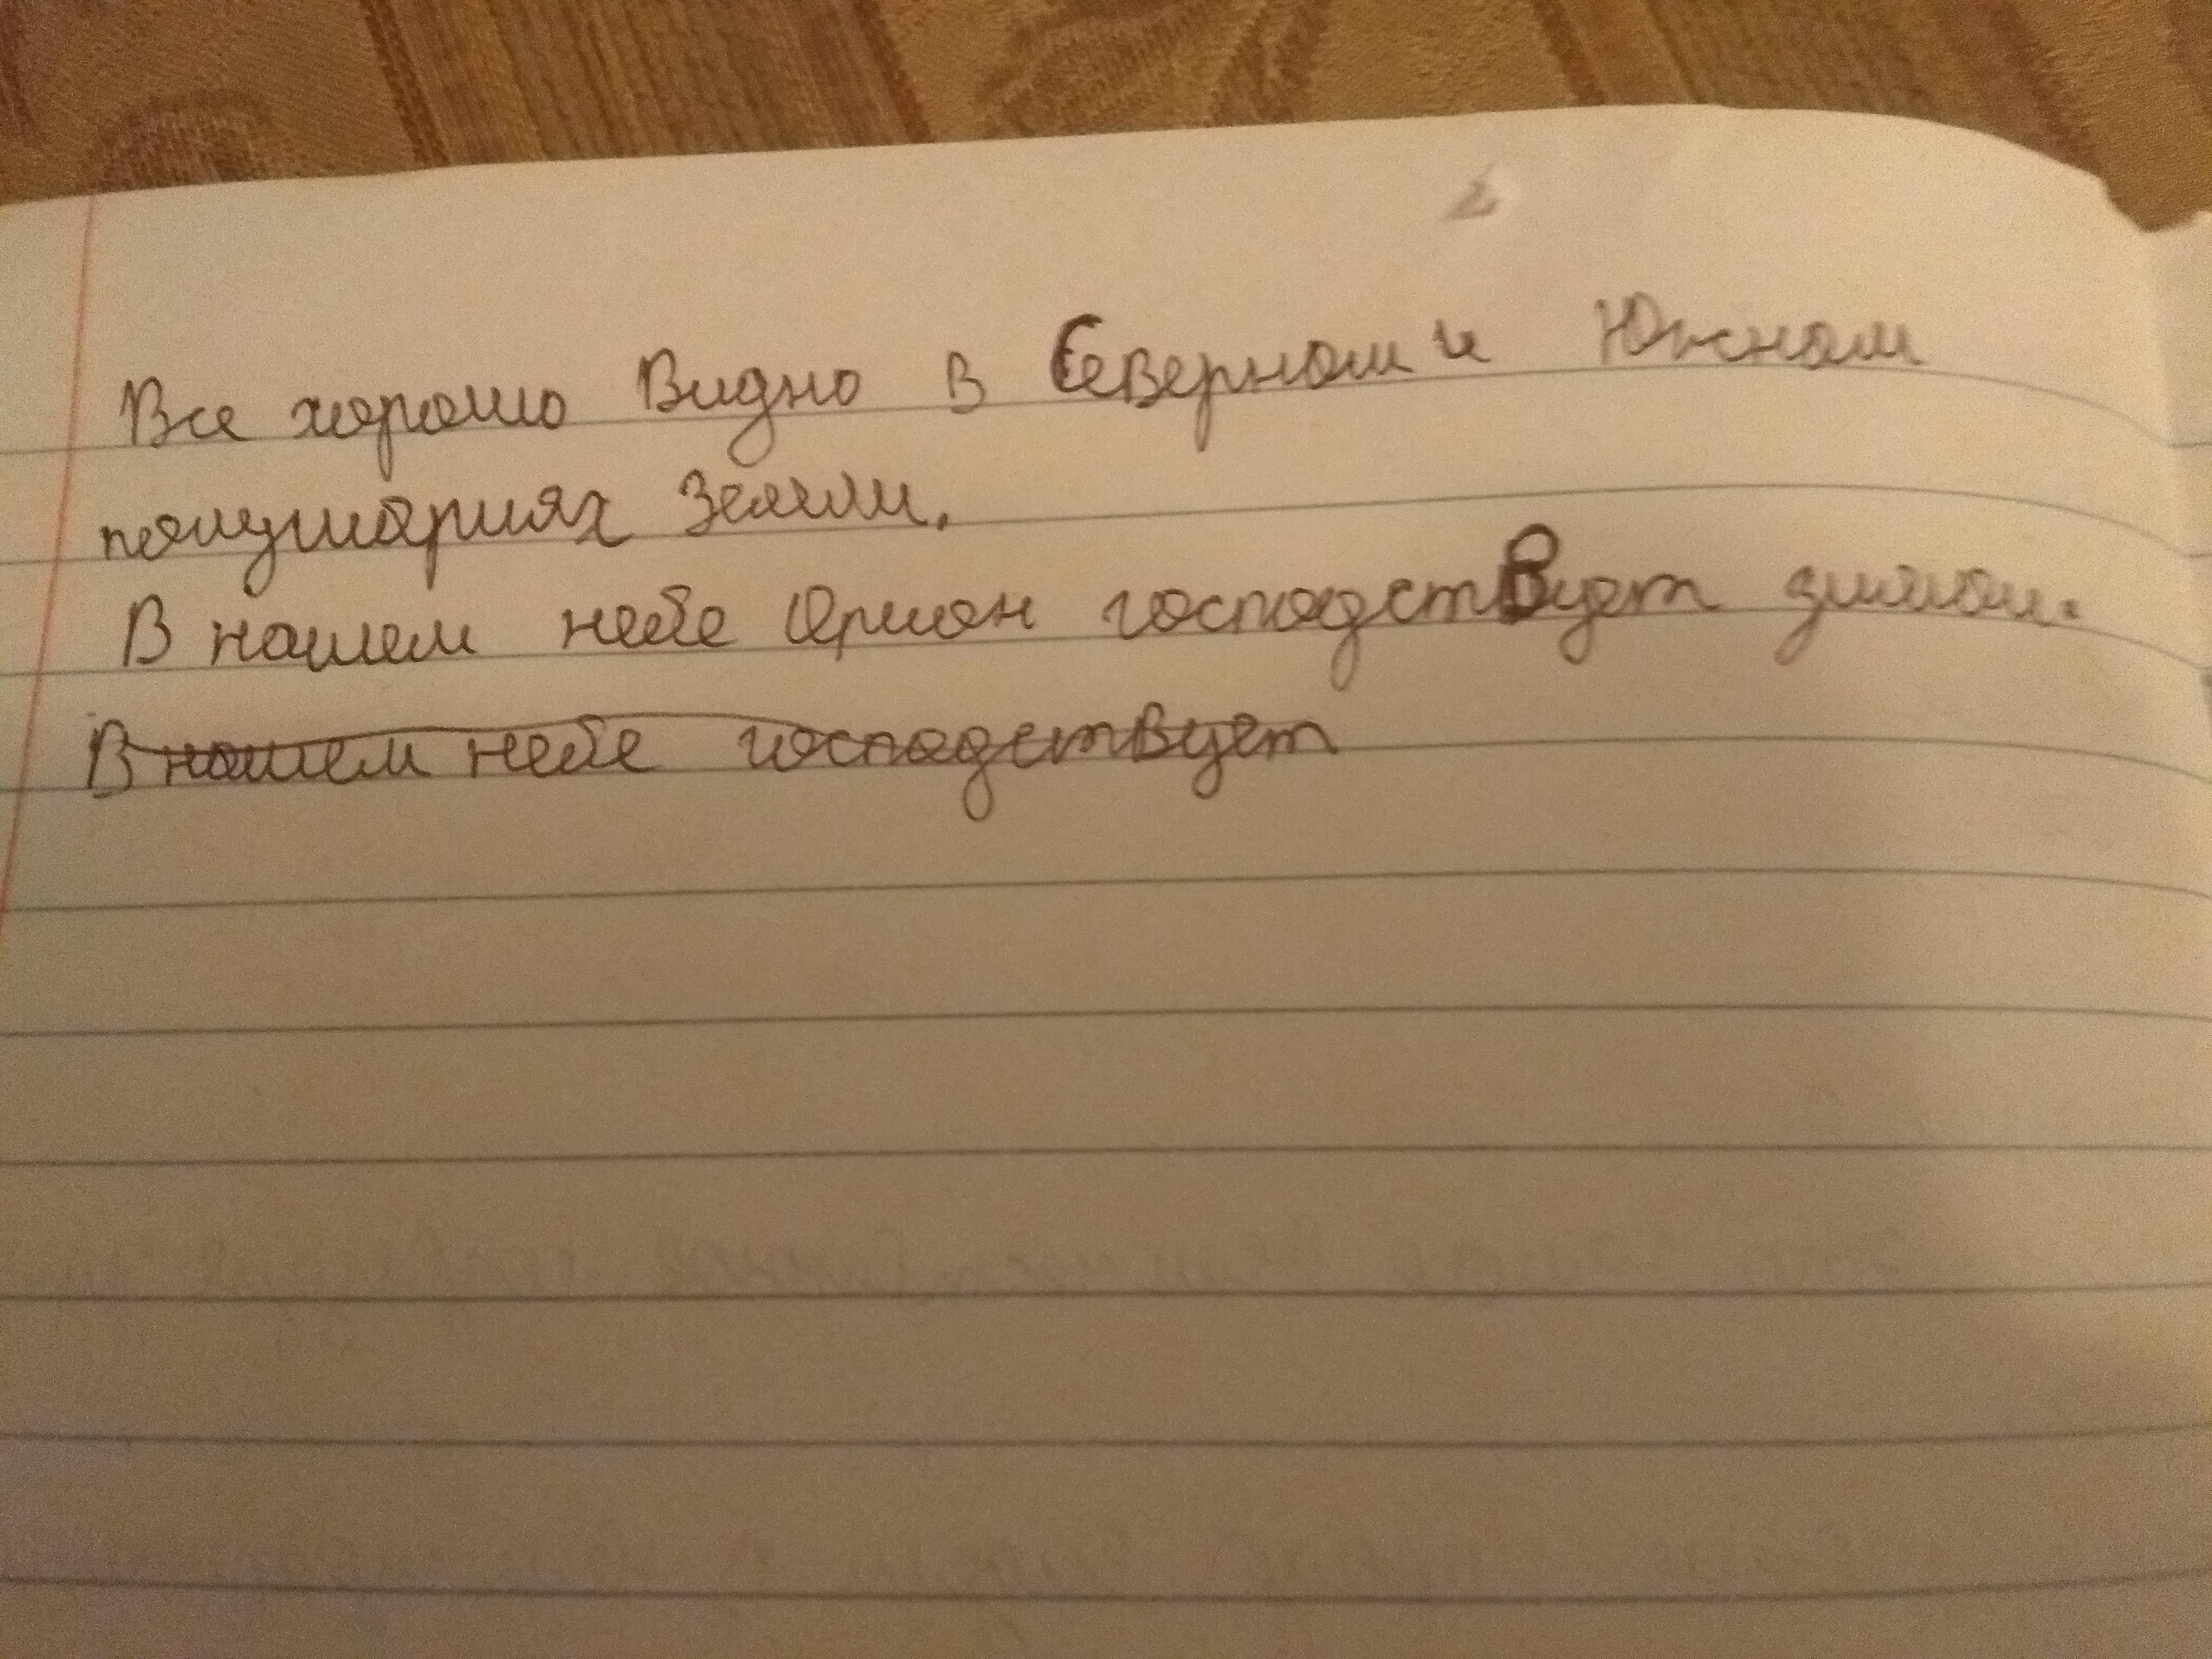 Все хорошо видно в Северном и Южном
полушариях Земли.
В нашем небе Орион господствует зимой.
В нашем небе господствует